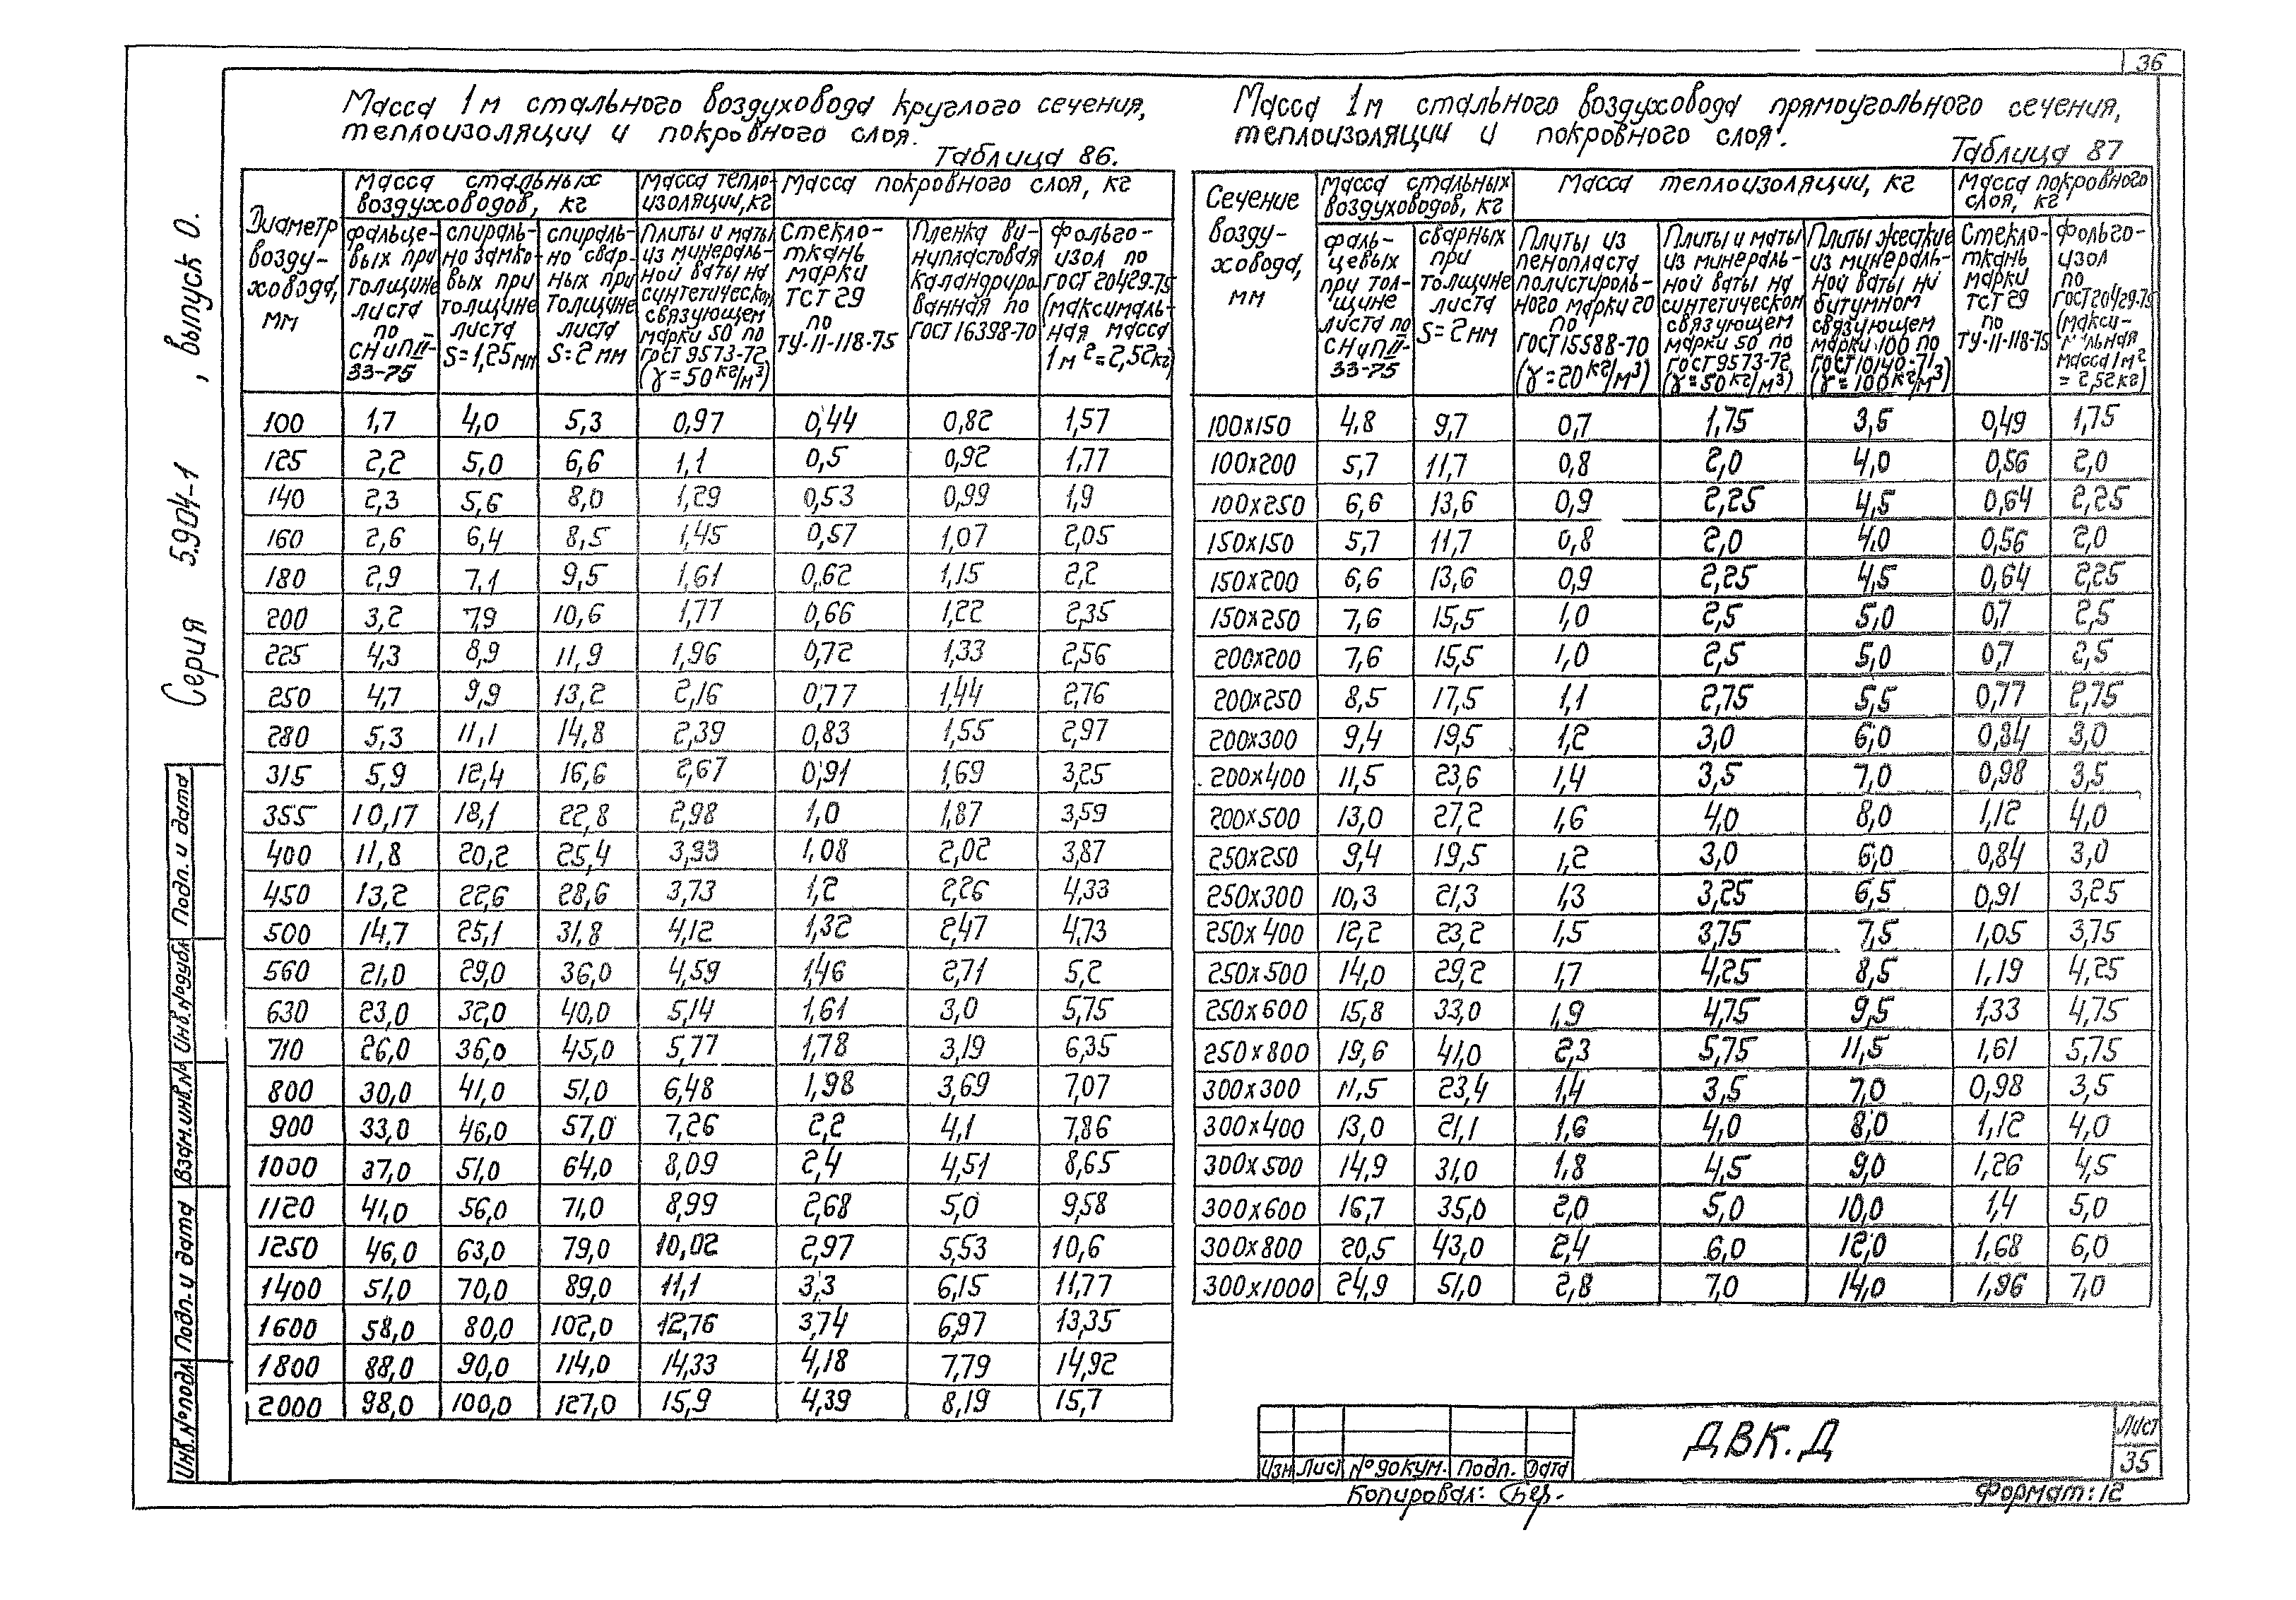 36
Масса 1м стального воздуховода круглого сечения,
теплоизоляции и покровного слоя.
Таблица 86.
Диаметр воздуховода, мм
Масса стальных воздуховодов, кг
Масса теплоизоляции, кг
Масса покровного слоя, кг
фальцевых при толщине листа по СНиП II-33-75
спирально замковых при толщине листа S=1,25мм
спирально сварных при толщине листа S=2мм
Плиты и маты из минеральной ваты на синтетическом связующем марки 50 по ГОСТ 9573-72 (γ=50 кг/м³)
Стеклоткань марки ТСТ 29 по ТУ-11-118-75
Пленка винипластовая каландрированная по ГОСТ 16398-70
Фольгоизол по ГОСТ 20429-75 (максимальная масса 1м²=2,52кг)
100 1,7 4,0 5,3 0,97 0,44 0,82 1,57
125 2,2 5,0 6,6 1,1 0,5 0,92 1,77
140 2,3 5,6 8,0 1,29 0,53 0,99 1,9
160 2,6 6,4 8,5 1,45 0,57 1,07 2,05
180 2,9 7,1 9,5 1,61 0,62 1,15 2,2
200 3,2 7,9 10,6 1,77 0,66 1,22 2,35
225 4,3 8,9 11,9 1,96 0,72 1,33 2,56
250 4,7 9,9 13,2 2,16 0,77 1,44 2,76
280 5,3 11,1 14,8 2,39 0,83 1,55 2,97
315 5,9 12,4 16,6 2,67 0,91 1,69 3,25
355 10,17 18,1 22,8 2,98 1,0 1,87 3,59
400 11,8 20,2 25,4 3,33 1,08 2,02 3,87
450 13,2 22,6 28,6 3,73 1,2 2,26 4,33
500 14,7 25,1 31,8 4,12 1,32 2,47 4,73
560 21,0 29,0 36,0 4,59 1,46 2,71 5,2
630 23,0 32,0 40,0 5,14 1,61 3,0 5,75
710 26,0 36,0 45,0 5,77 1,78 3,19 6,35
800 30,0 41,0 51,0 6,48 1,98 3,69 7,07
900 33,0 46,0 57,0 7,26 2,2 4,1 7,86
1000 37,0 51,0 64,0 8,09 2,4 4,51 8,65
1120 41,0 56,0 71,0 8,99 2,68 5,0 9,58
1250 46,0 63,0 79,0 10,02 2,97 5,53 10,6
1400 51,0 70,0 89,0 11,1 3,3 6,15 11,77
1600 58,0 80,0 102,0 12,76 3,74 6,97 13,35
1800 88,0 90,0 114,0 14,33 4,18 7,79 14,92
2000 98,0 100,0 127,0 15,9 4,39 8,19 15,7
Масса 1м стального воздуховода прямоугольного сечения,
теплоизоляции и покровного слоя.
Таблица 87
Сечение воздуховода, мм
Масса стальных воздуховодов, кг
Масса теплоизоляции, кг
Масса покровного слоя, кг
фальцевых при толщине листа по СНиП II-33-75
сварных при толщине листа S=2мм
Плиты из пенопласта полистирольного марки 20 по ГОСТ 15588-70 (γ=20 кг/м³)
Плиты и маты из минеральной ваты на синтетическом связующем марки 50 по ГОСТ 9573-72 (γ=50 кг/м³)
Плиты жесткие из минеральной ваты на битумном связующем марки 100 по ГОСТ 10140-71 (γ=100 кг/м³)
Стеклоткань марки ТСТ 29 по ТУ-11-118-75
Фольгоизол по ГОСТ 20429-75 (максимальная масса 1м²=2,52кг)
100х150 4,8 9,7 0,7 1,75 3,5 0,49 1,75
100х200 5,7 11,7 0,8 2,0 4,0 0,56 2,0
100х250 6,6 13,6 0,9 2,25 4,5 0,64 2,25
150х150 5,7 11,7 0,8 2,0 4,0 0,56 2,0
150х200 6,6 13,6 0,9 2,25 4,5 0,64 2,25
150х250 7,6 15,5 1,0 2,5 5,0 0,7 2,5
200х200 7,6 15,5 1,0 2,5 5,0 0,7 2,5
200х250 8,5 17,5 1,1 2,75 5,5 0,77 2,75
200х300 9,4 19,5 1,2 3,0 6,0 0,84 3,0
200х400 11,5 23,6 1,4 3,5 7,0 0,98 3,5
200х500 13,0 27,2 1,6 4,0 8,0 1,12 4,0
250х250 9,4 19,5 1,2 3,0 6,0 0,84 3,0
250х300 10,3 21,3 1,3 3,25 6,5 0,91 3,25
250х400 12,2 23,2 1,5 3,75 7,5 1,05 3,75
250х500 14,0 29,2 1,7 4,25 8,5 1,19 4,25
250х600 15,8 33,0 1,9 4,75 9,5 1,33 4,75
250х800 19,6 41,0 2,3 5,75 11,5 1,61 5,75
300х300 11,5 23,4 1,4 3,5 7,0 0,98 3,5
300х400 13,0 21,1 1,6 4,0 8,0 1,12 4,0
300х500 14,9 31,0 1,8 4,5 9,0 1,26 4,5
300х600 16,7 35,0 2,0 5,0 10,0 1,4 5,0
300х800 20,5 43,0 2,4 6,0 12,0 1,68 6,0
300х1000 24,9 51,0 2,8 7,0 14,0 1,96 7,0
Серия 5.904-1 , выпуск 0.
Подп. и дата
Инв.№дубл.
Взам.инв.№
Подп. и дата
Инв.№подл.
Изм Лист №докум. Подп. Дата
ДВК.Д
Лист
35
Копировал:
Формат: 12